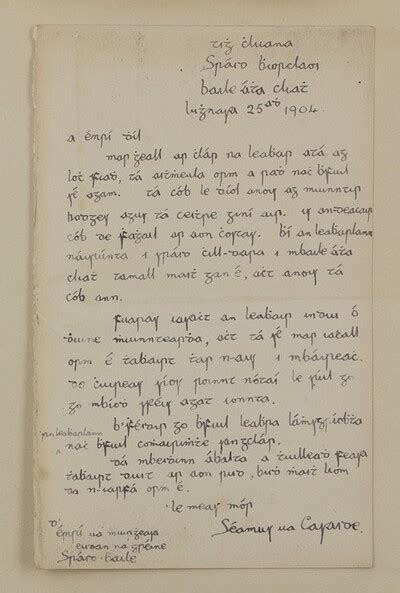 tiġ ċluana
Sráid
baile áṫa cliaṫ
luġnasa 25aḋ 1904.
a énrí ḋíl
mar ġeall ar ċlár na leaḃar atá ag
loċ fiaḋ, tá aiṫṁeula orm a ráḋ naċ ḃfuil
sé agam. tá cób le díol anois ag muinntir
hodges agus tá ceiṫre giní air. is andeacair
cób de ḟaġail ar aon ċostas. ḃí an leaḃarlann
náisiúnta i sráid ċill-dara i mbaile áṫa
cliaṫ tamall maiṫ gan é, aċt anois tá
cób ann.
fuaras iasaċt an leaḃair indiu ó
ḋuine ṁuinntearḋa, aċt tá sé mar
orm é ṫaḃairt ṫar n-ais i mbáireaċ.
do ċuireas síos roinnt nótaí le súil go
go spéis agat ionnta.
b'féidir go ḃfuil leaḃra láiṁsgríoḃṫa
san leaḃarlann naċ ḃfuil san gclár.
dá mbeiḋinn ábalta a ṫuilleaḋ feasa
ṫaḃairt duit ar aon rud, buḋ ṁaiṫ liom
da n-iarrfá orm é.
le meas mór
Séamus ua Casaide.
d'énrí ua muirġeasa
eudan na gréine
Sráid-baile